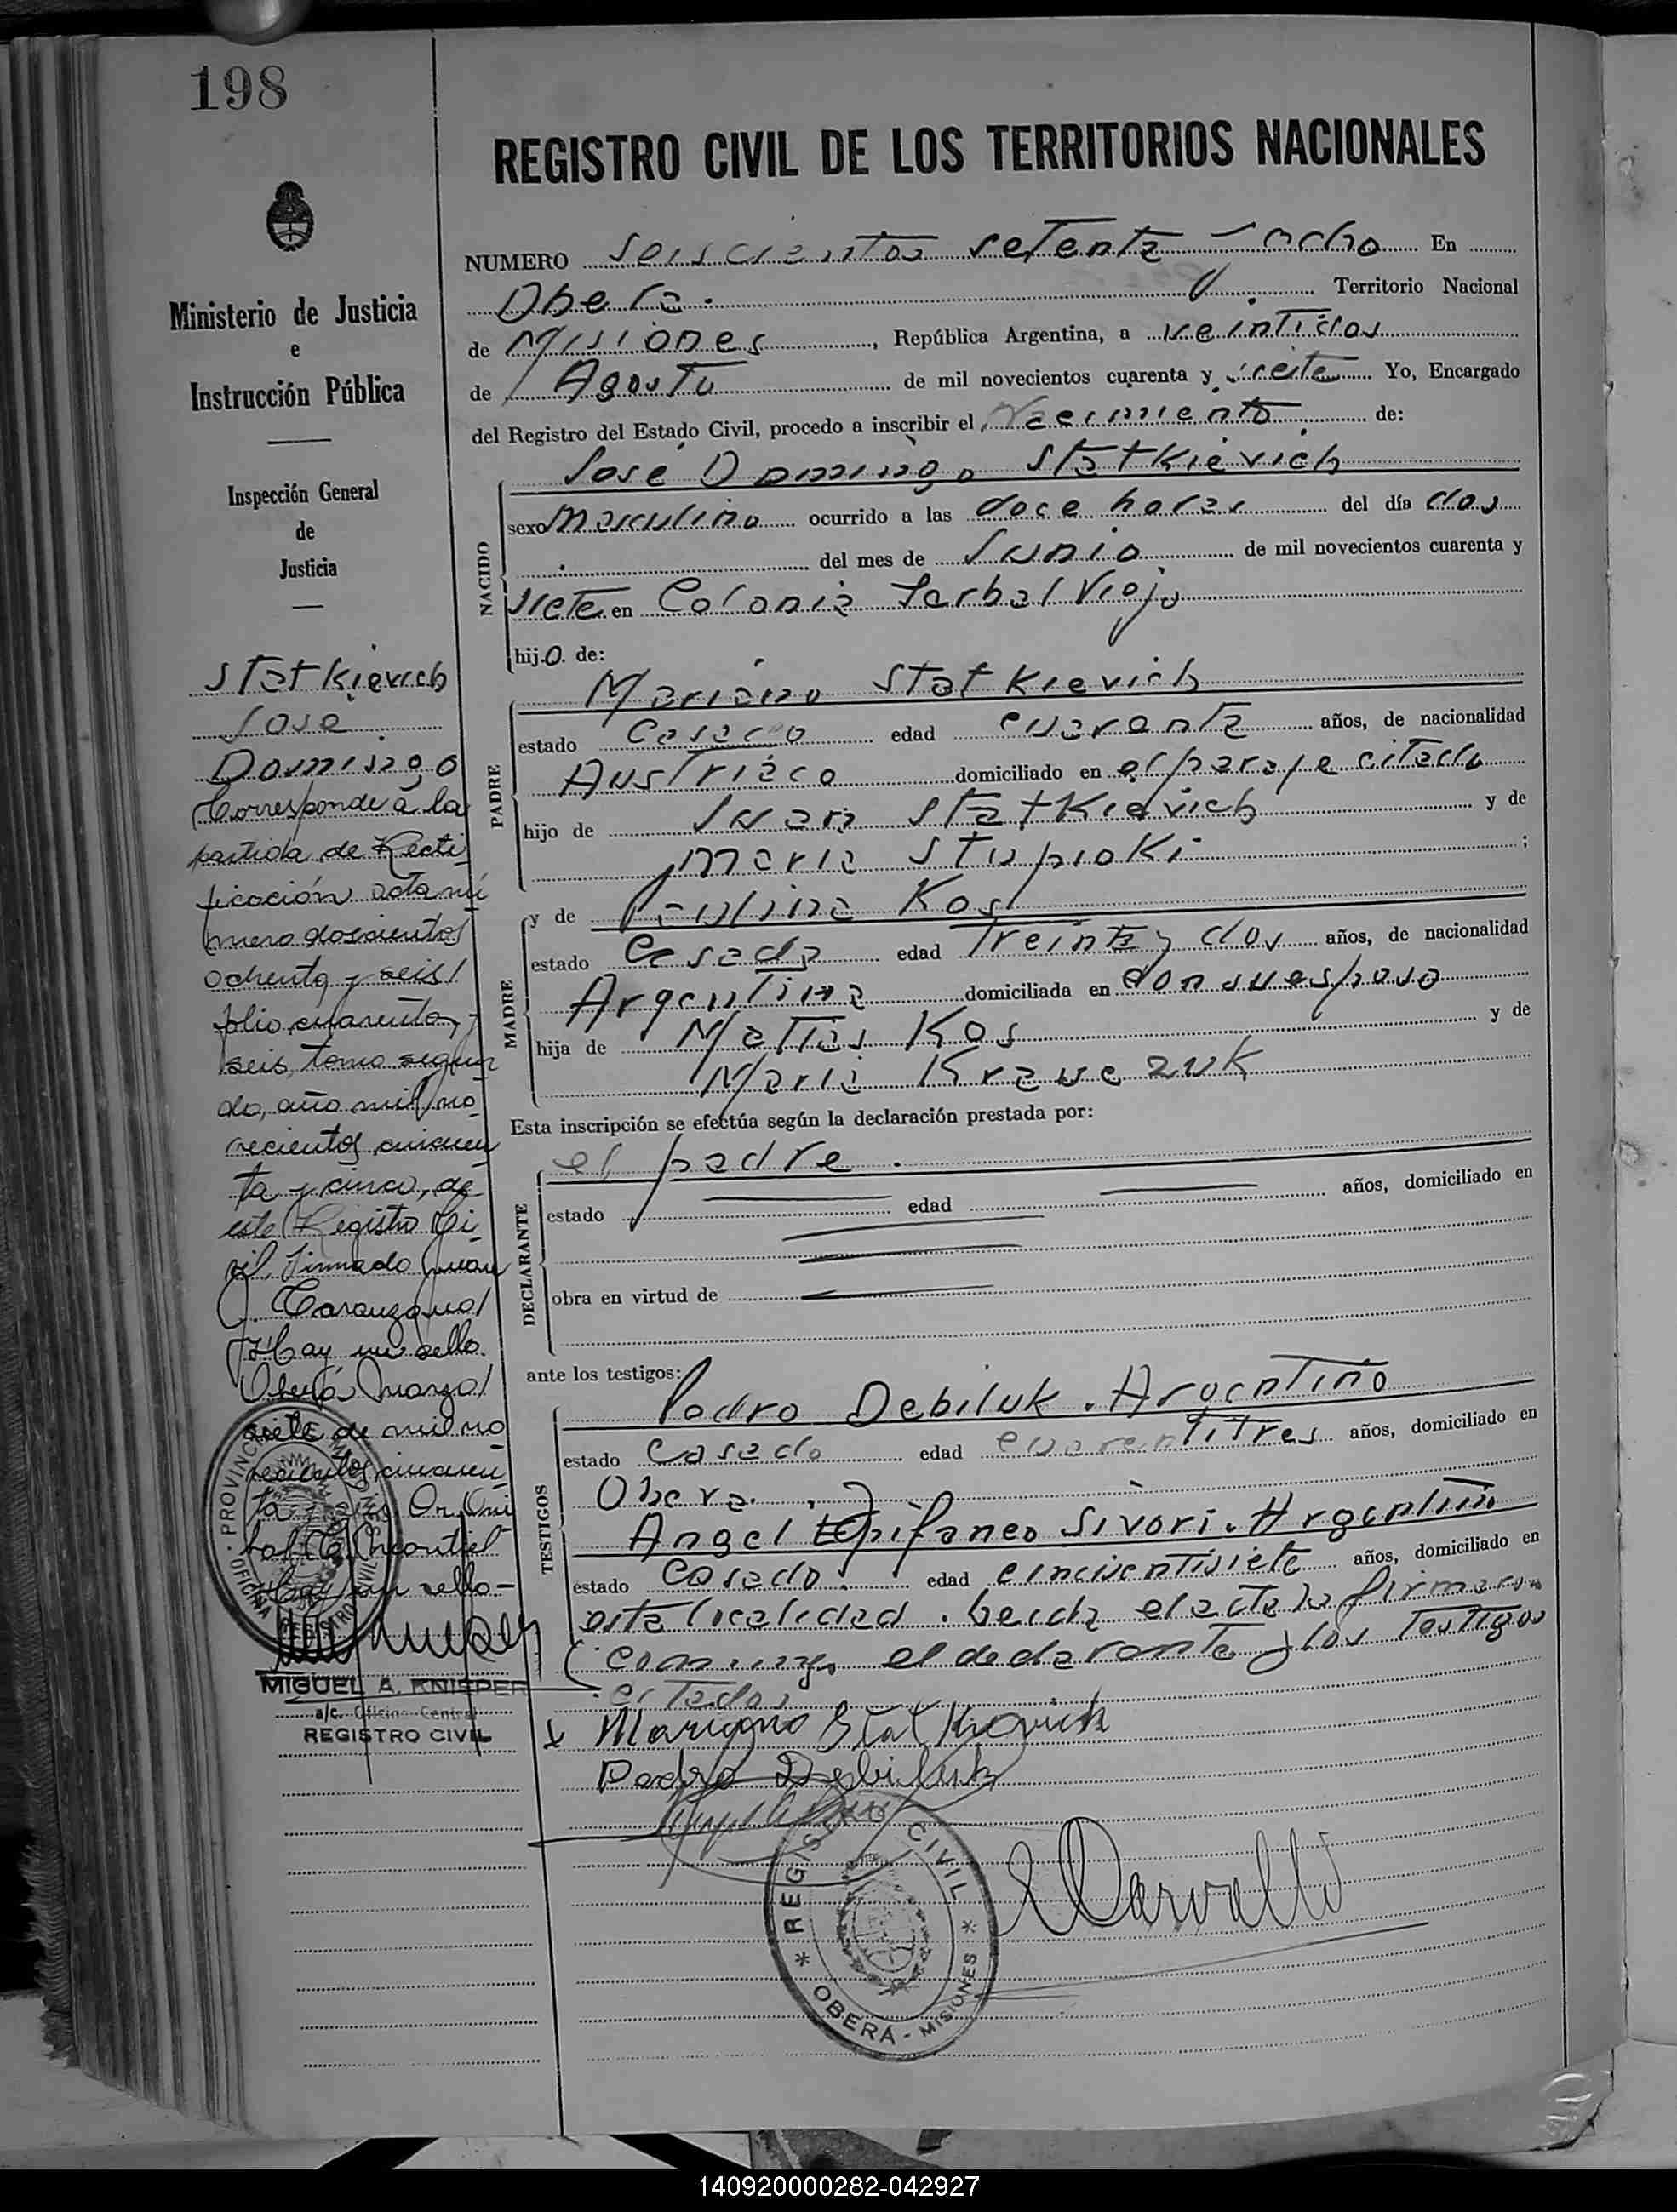 198
REGISTRO CIVIL DE LOS TERRITORIOS NACIONALES
Ministerio de Justicia
e
Instrucción Pública
Inspección General
de
Justicia
Statkievich
José
Domingo
Corresponde a la
partida de Recti
ficación acta nú
mero doscientos
ochenta y seis/
folio cuarenta y
seis, tomo segun
do, año mil no
vecientos cincuen
ta y cinco, de
este Registro Ci
vil. Firmado Juan
Hay un sello.
Oberá, Marzo/
siete de mil no
vecientos cincuen
ta y seis
Hay un sello-
PROVINCIA MISIONES
OFICINA REGISTRO CIVIL
MIGUEL A. KNISPER
a/c. Oficina Central
REGISTRO CIVIL
NUMERO seiscientos setenta y ocho En
Obera. Territorio Nacional
de Misiones, República Argentina, a veintidos
de Agosto de mil novecientos cuarenta y siete Yo, Encargado
del Registro del Estado Civil, procedo a inscribir el Nacimiento de:
NACIDO
José Domingo Statkievich
sexo Masculino ocurrido a las doce horas del día dos
del mes de Junio de mil novecientos cuarenta y
siete en Colonia Yerbal Viejo
hijo de:
PADRE
Mariano Statkievich
estado Casado edad cuarenta años, de nacionalidad
Austriáca domiciliado en el paraje citado
hijo de Juan Statkievich y de
Maria Stupioki;
MADRE
y de Paulina Kos
estado Casada edad Treinta y dos años, de nacionalidad
Argentina domiciliada en con su esposo
hija de Matias Kos y de
Maria Kraueзuk
Esta inscripción se efectúa según la declaración prestada por:
DECLARANTE
el padre.
estado edad años, domiciliado en
obra en virtud de
ante los testigos:
TESTIGOS
Pedro Debiluk. Argentino
estado Casado edad cuarentitres años, domiciliado en
Obera.
Angel Epifaneo Sivori. Argentino
estado Casado. edad cincuentisiete años, domiciliado en
esta localidad. Leida el acta la firmaron
conmigo el declarante y los Testigos
citados
x Mariano Statkievich
Pedro Debiluk
Carvallo
* REGISTRO CIVIL *
OBERÁ - MISIONES
140920000282-042927